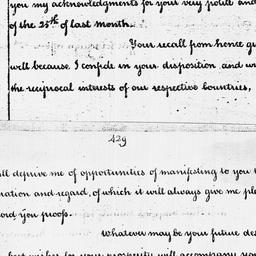 you my acknowledgments for your very polite and
of the 25th of last month.
Your recall from hence
well because I confide in your disposition and
the reciprocal interests of our respective countries,
429
deprive me of opportunities of manifesting to you
and regard, of which it will always give me
you proofs.
Whatever may be your future
best wishes for your prosperity will accompany you